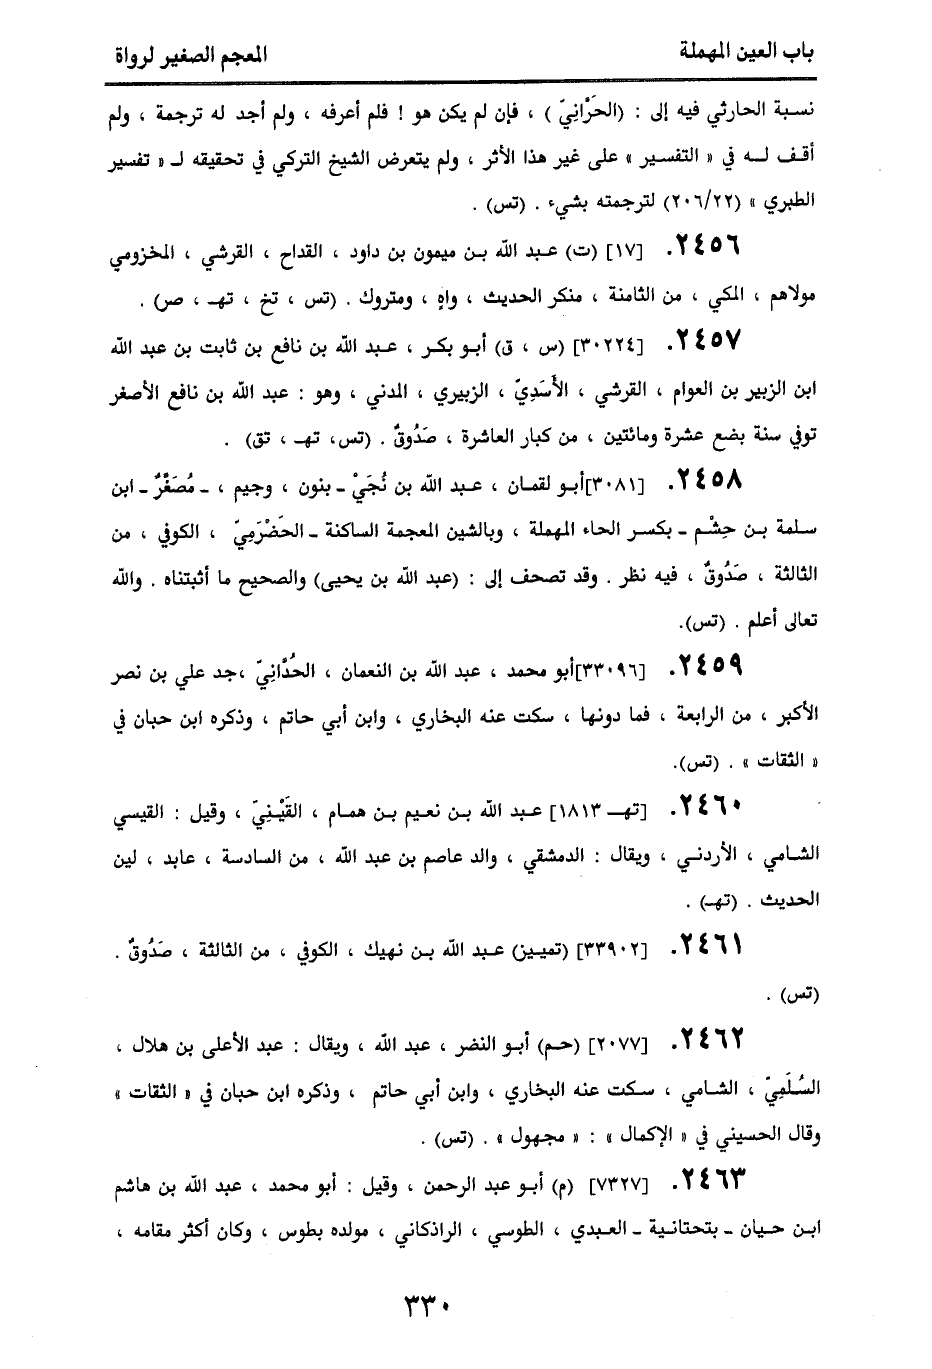 باب العين المهملة
المعجم الصغير لرواة
نسبة الحارثي فيه إلى : (الحَرَّانِيّ ) ، فإن لم يكن هو ! فلم أعرفه ، ولم أجد له ترجمة ، ولم
أقف له في « التفسير » على غير هذا الأثر ، ولم يتعرض الشيخ التركي في تحقيقه لـ « تفسير
الطبري » (٢٠٦/٢٢) لترجمته بشيء . (تس) .
٢٤٥٦. [١٧] (ت) عبد الله بن ميمون بن داود ، القداح ، القرشي ، المخزومي
مولاهم ، المكي ، من الثامنة ، منكر الحديث ، واهٍ ، ومتروك . (تس ، تخ ، تهـ ، صر) .
٢٤٥٧. [٣٠٢٢٤] (س ، ق) أبو بكر ، عبد الله بن نافع بن ثابت بن عبد الله
ابن الزبير بن العوام ، القرشي ، الأَسَدِيّ ، الزبيري ، المدني ، وهو : عبد الله بن نافع الأصغر
توفي سنة بضع عشرة ومائتين ، من كبار العاشرة ، صَدُوقٌ . (تس، تهـ ، تق) .
٢٤٥٨. [٣٠٨١]أبو لقمان ، عبد الله بن نُجَيْ ـ بنون ، وجيم ، ـ مُصَغَّرٌ ـ ابن
سلمة بن حِشْم ـ بكسر الحاء المهملة ، وبالشين المعجمة الساكنة ـ الحَضْرَمِيّ ، الكوفي ، من
الثالثة ، صَدُوقٌ ، فيه نظر . وقد تصحف إلى : (عبد الله بن يحيى) والصحيح ما أثبتناه . والله
تعالى أعلم . (تس).
٢٤٥٩. [٣٣٠٩٦]أبو محمد ، عبد الله بن النعمان ، الحُدَّانِيّ ،جد علي بن نصر
الأكبر ، من الرابعة ، فما دونها ، سكت عنه البخاري ، وابن أبي حاتم ، وذكره ابن حبان في
« الثقات » . (تس).
٢٤٦٠. [تهـ ١٨١٣] عبد الله بن نعيم بن همام ، القَيْنِيّ ، وقيل : القيسي
الشامي ، الأردني ، ويقال : الدمشقي ، والد عاصم بن عبد الله ، من السادسة ، عابد ، لين
الحديث . (تهـ) .
٢٤٦١. [٣٣٩٠٢] (تمييز) عبد الله بن نهيك ، الكوفي ، من الثالثة ، صَدُوقٌ .
(تس) .
٢٤٦٢. [٢٠٧٧] (حم) أبو النضر ، عبد الله ، ويقال : عبد الأعلى بن هلال ،
السُلَمِيّ ، الشامي ، سكت عنه البخاري ، وابن أبي حاتم ، وذكره ابن حبان في « الثقات »
وقال الحسيني في « الإكمال » : « مجهول » . (تس) .
٢٤٦٣. [٧٣٢٧] (م) أبو عبد الرحمن ، وقيل : أبو محمد ، عبد الله بن هاشم
ابن حيان ـ بتحتانية ـ العبدي ، الطوسي ، الراذكاني ، مولده بطوس ، وكان أكثر مقامه ،
٣٣٠